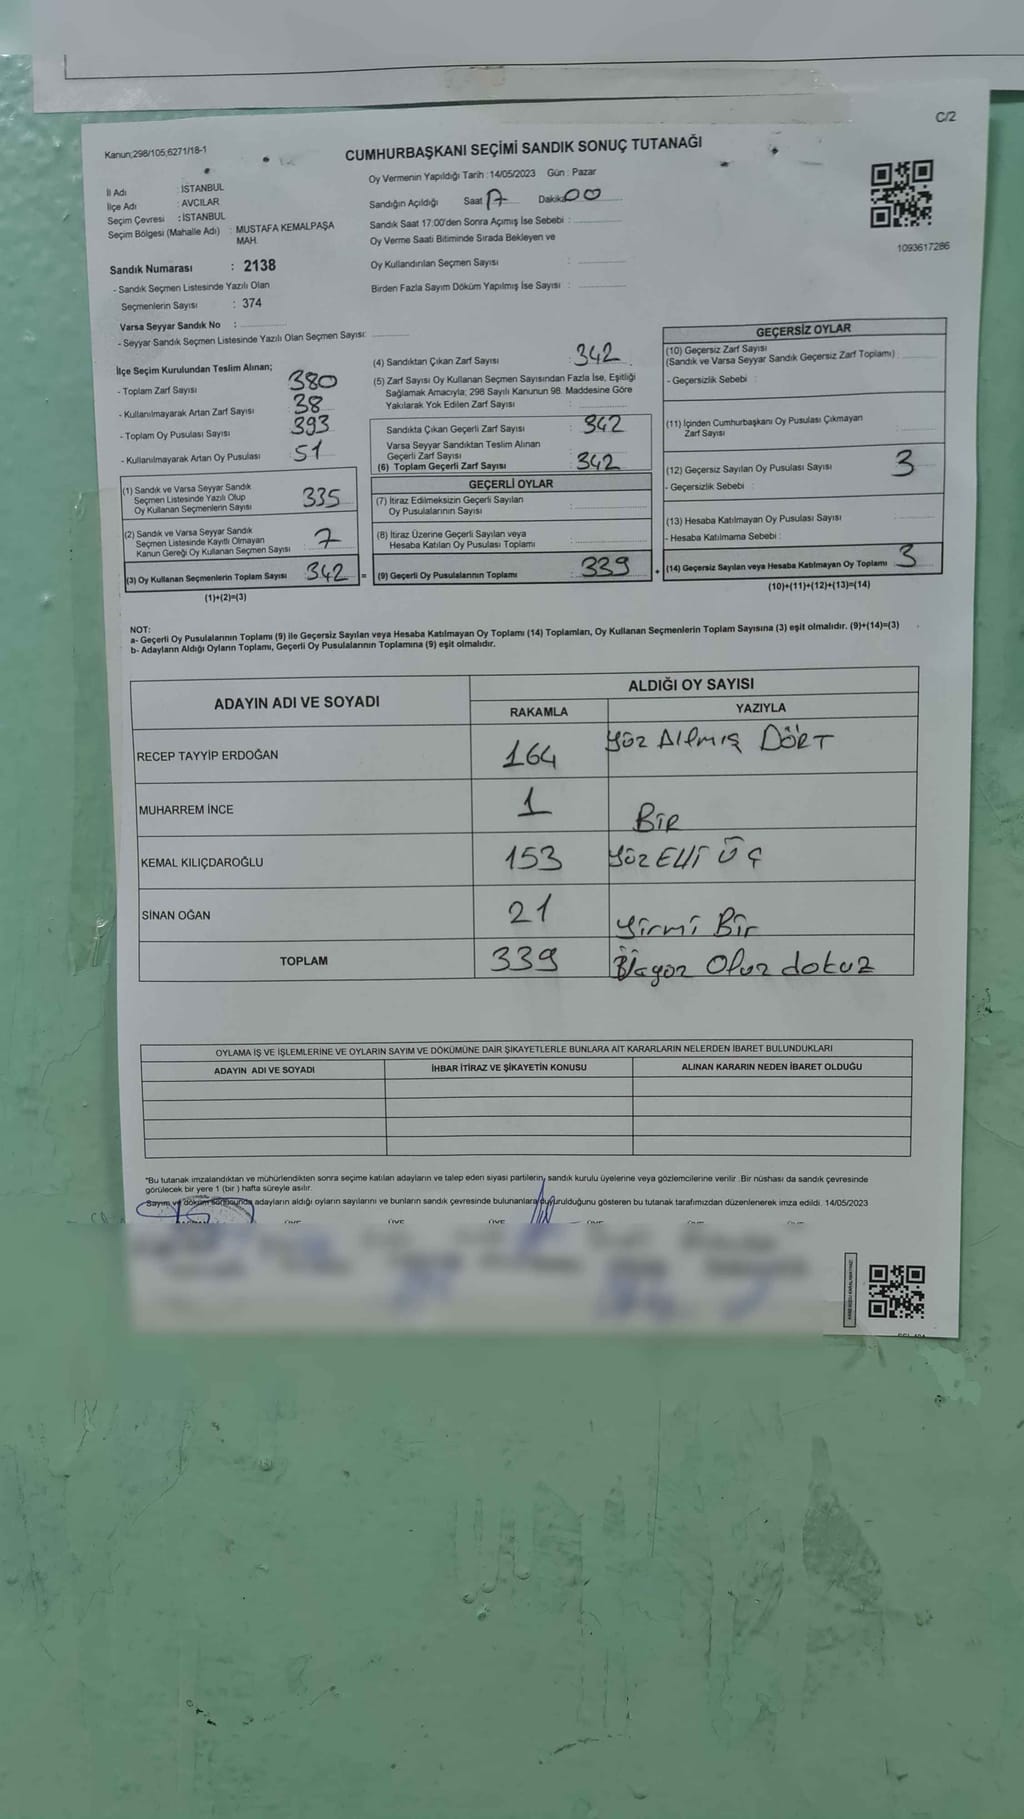 C/2
Kanun;298/105;6271/18-1
CUMHURBAŞKANI SEÇİMİ SANDIK SONUÇ TUTANAĞI
Oy Vermenin Yapıldığı Tarih : 14/05/2023 Gün : Pazar
İl Adı : İSTANBUL
İlçe Adı : AVCILAR
Seçim Çevresi : İSTANBUL
Seçim Bölgesi (Mahalle Adı) : MUSTAFA KEMALPAŞA
MAH.
Sandık Numarası : 2138
- Sandık Seçmen Listesinde Yazılı Olan
Seçmenlerin Sayısı : 374
Varsa Seyyar Sandık No :
- Seyyar Sandık Seçmen Listesinde Yazılı Olan Seçmen Sayısı:
Sandığın Açıldığı Saat Dakika 00
Sandık Saat 17:00'den Sonra Açımış İse Sebebi :
Oy Verme Saati Bitiminde Sırada Bekleyen ve
Oy Kullandırılan Seçmen Sayısı :
Birden Fazla Sayım Döküm Yapılmış İse Sayısı :
1093617286
İlçe Seçim Kurulundan Teslim Alınan;
- Toplam Zarf Sayısı 380
- Kullanılmayarak Artan Zarf Sayısı 38
- Toplam Oy Pusulası Sayısı 393
- Kullanılmayarak Artan Oy Pusulası 51
(1) Sandık ve Varsa Seyyar Sandık
Seçmen Listesinde Yazılı Olup
Oy Kullanan Seçmenlerin Sayısı 335
(2) Sandık ve Varsa Seyyar Sandık
Seçmen Listesinde Kayıtlı Olmayan
Kanun Gereği Oy Kullanan Seçmen Sayısı 7
(3) Oy Kullanan Seçmenlerin Toplam Sayısı 342 =
(1)+(2)=(3)
(4) Sandıktan Çıkan Zarf Sayısı : 342
(5) Zarf Sayısı Oy Kullanan Seçmen Sayısından Fazla İse, Eşitliği
Sağlamak Amacıyla; 298 Sayılı Kanunun 98. Maddesine Göre
Yakılarak Yok Edilen Zarf Sayısı :
Sandıkta Çıkan Geçerli Zarf Sayısı : 342
Varsa Seyyar Sandıktan Teslim Alınan
Geçerli Zarf Sayısı :
(6) Toplam Geçerli Zarf Sayısı 342
GEÇERLİ OYLAR
(7) İtiraz Edilmeksizin Geçerli Sayılan
Oy Pusulalarının Sayısı :
(8) İtiraz Üzerine Geçerli Sayılan veya
Hesaba Katılan Oy Pusulası Toplamı :
(9) Geçerli Oy Pusulalarının Toplamı 339 +
GEÇERSİZ OYLAR
(10) Geçersiz Zarf Sayısı
(Sandık ve Varsa Seyyar Sandık Geçersiz Zarf Toplamı) :
- Geçersizlik Sebebi :
(11) İçinden Cumhurbaşkanı Oy Pusulası Çıkmayan
Zarf Sayısı
(12) Geçersiz Sayılan Oy Pusulası Sayısı 3
- Geçersizlik Sebebi :
(13) Hesaba Katılmayan Oy Pusulası Sayısı :
- Hesaba Katılmama Sebebi :
(14) Geçersiz Sayılan veya Hesaba Katılmayan Oy Toplamı 3
(10)+(11)+(12)+(13)=(14)
NOT:
a- Geçerli Oy Pusulalarının Toplamı (9) ile Geçersiz Sayılan veya Hesaba Katılmayan Oy Toplamı (14) Toplamları, Oy Kullanan Seçmenlerin Toplam Sayısına (3) eşit olmalıdır. (9)+(14)=(3)
b- Adayların Aldığı Oyların Toplamı, Geçerli Oy Pusulalarının Toplamına (9) eşit olmalıdır.
ADAYIN ADI VE SOYADI ALDIĞI OY SAYISI
RAKAMLA YAZIYLA
RECEP TAYYİP ERDOĞAN 164 Yüz Altmış DÖRT
MUHARREM İNCE 1 BİR
KEMAL KILIÇDAROĞLU 153 Yüz Elli ÜÇ
SİNAN OĞAN 21 Yirmi Bir
TOPLAM 339 Üçyüz Otuz dokuz
OYLAMA İŞ VE İŞLEMLERİNE VE OYLARIN SAYIM VE DÖKÜMÜNE DAİR ŞİKAYETLERLE BUNLARA AİT KARARLARIN NELERDEN İBARET BULUNDUKLARI
ADAYIN ADI VE SOYADI İHBAR İTİRAZ VE ŞİKAYETİN KONUSU ALINAN KARARIN NEDEN İBARET OLDUĞU
*Bu tutanak imzalandıktan ve mühürlendikten sonra seçime katılan adayların ve talep eden siyasi partilerin, sandık kurulu üyelerine veya gözlemcilerine verilir. Bir nüshası da sandık çevresinde
görülecek bir yere 1 (bir ) hafta süreyle asılır.
Sayım ve döküm sonucunda adayların aldığı oyların sayılarını ve bunların sandık çevresinde bulunanlara duyurulduğunu gösteren bu tutanak tarafımızdan düzenlenerek imza edildi. 14/05/2023
ÜYE ÜYE ÜYE ÜYE ÜYE ÜYE